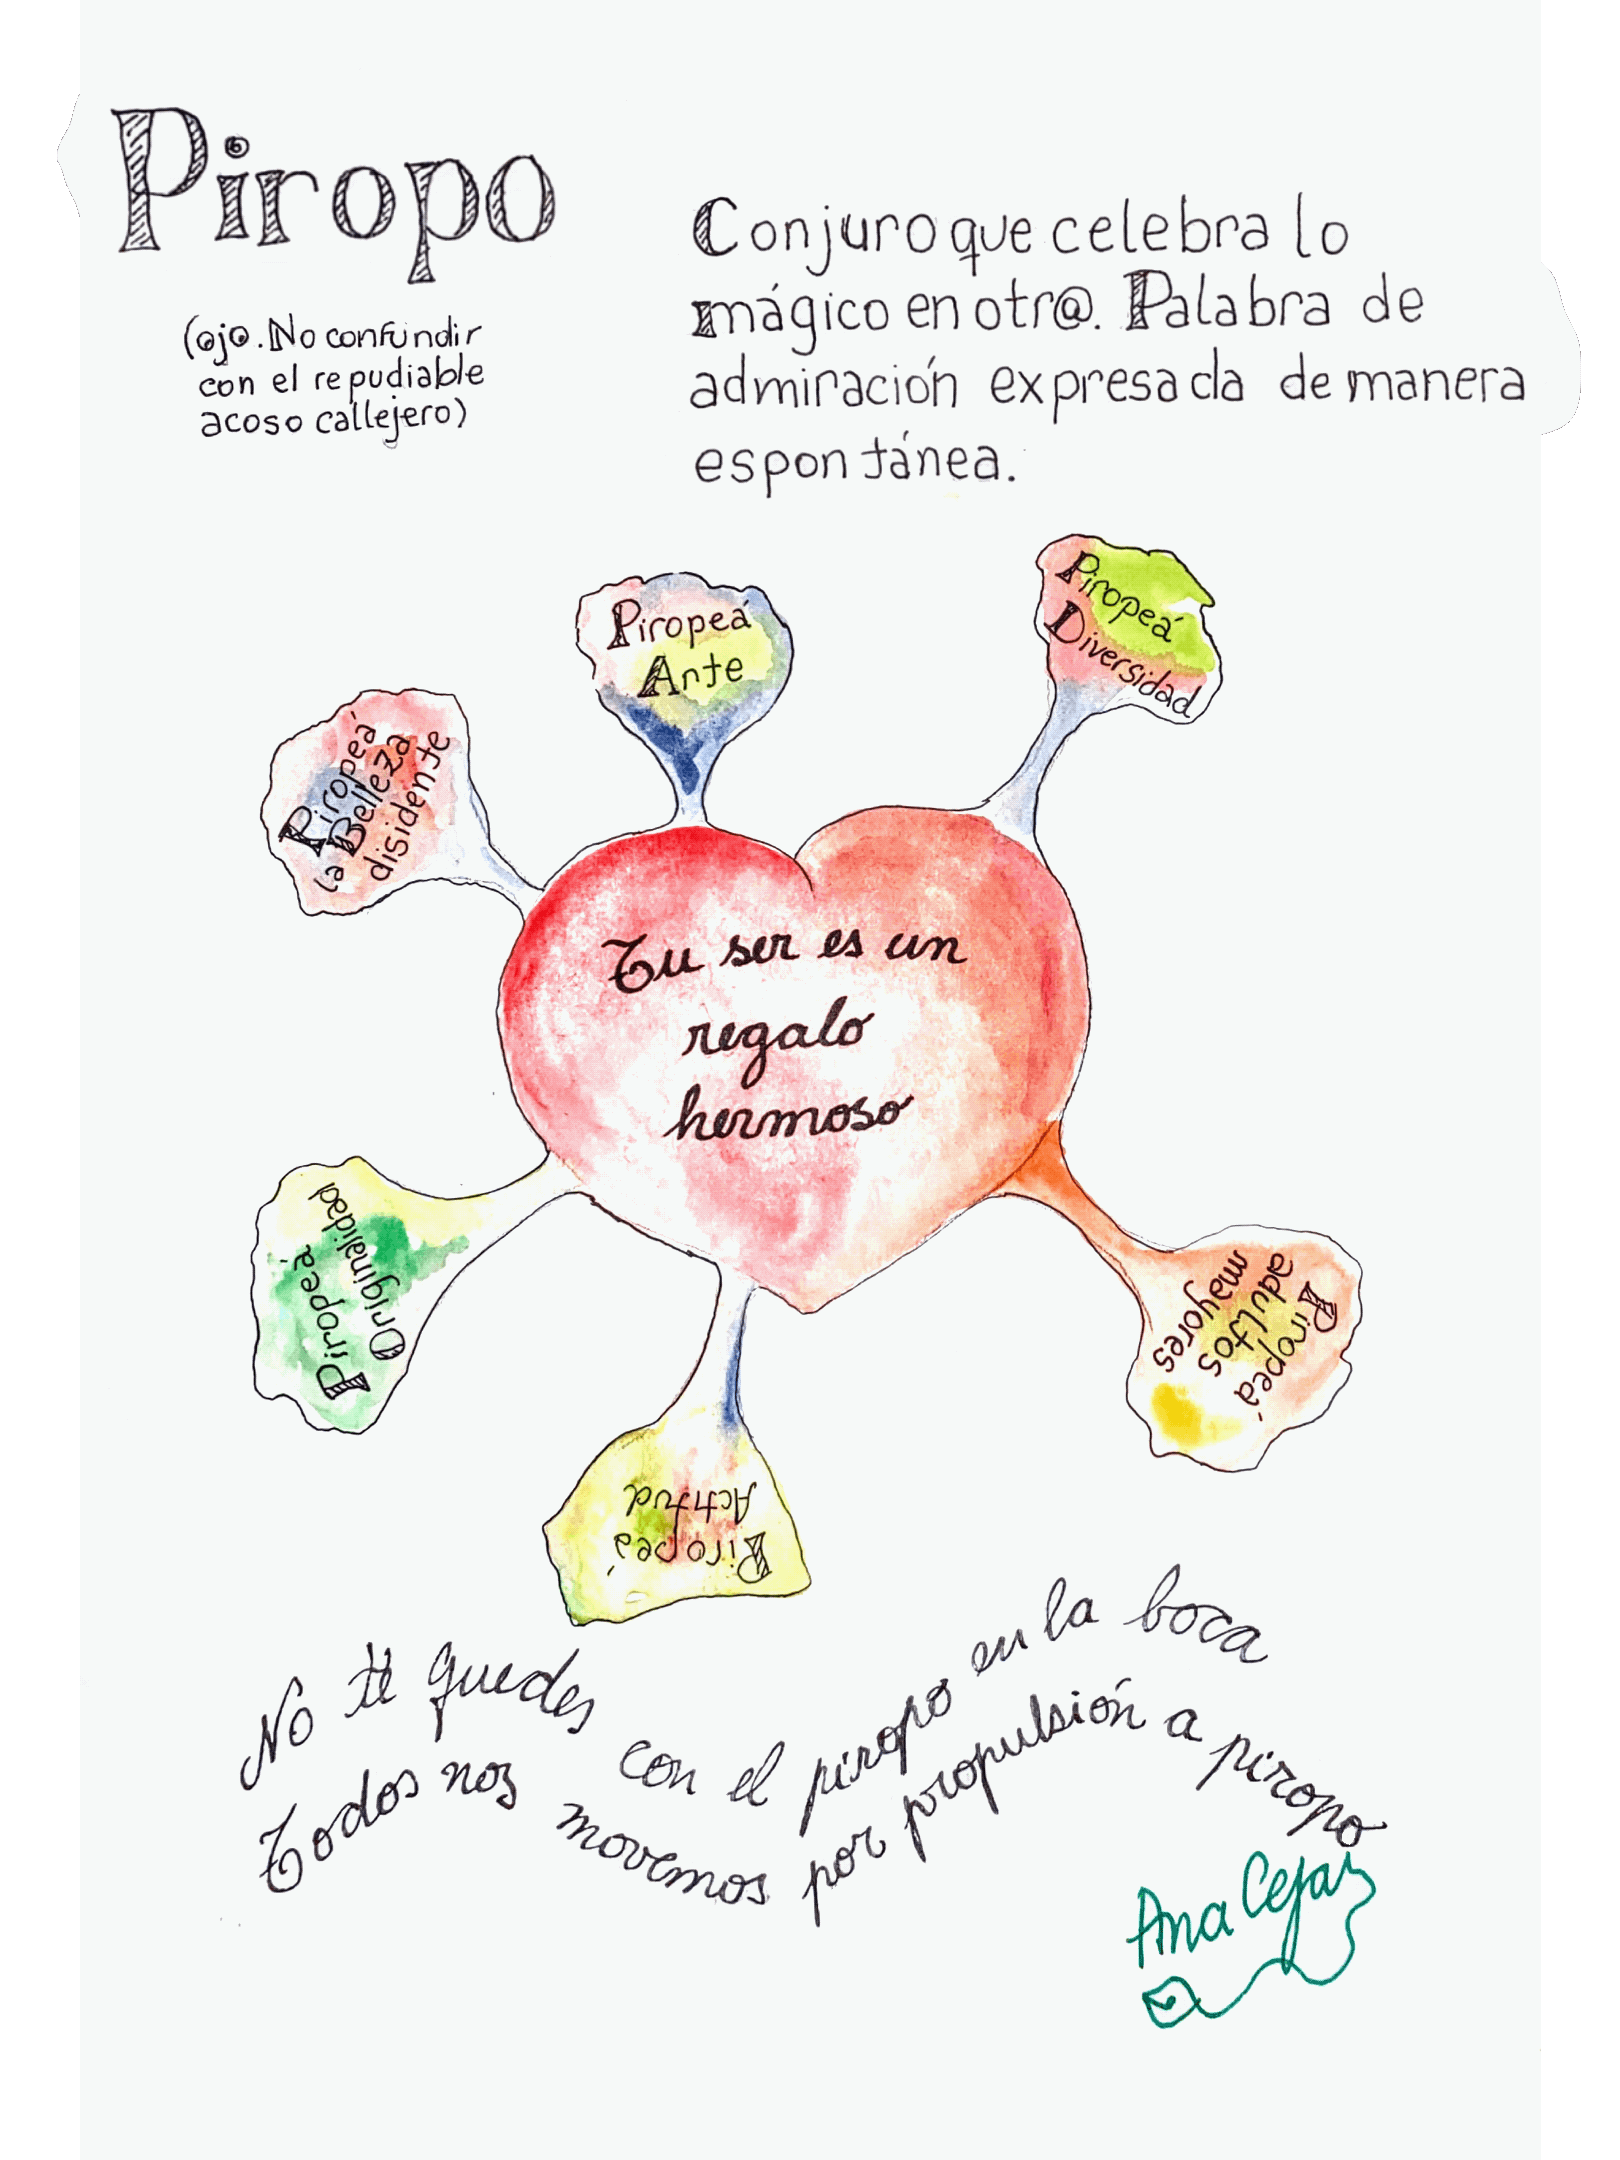 Piropo
(ojo. No confundir
con el repudiable
acoso callejero)
Conjuro que celebra lo
mágico en otr@. Palabra de
admiración expresada de manera
espontánea.
Piropeá
Ante
Piropeá
Diversidad
Piropeá
la Belleza
disidente
Tu ser es un
regalo
hermoso
Piropeá
Originalidad
Piropeá
adultos
mayores
Piropeá
Actitud
No te quedes con el piropo en la boca
Todos nos movemos por propulsión a piropo
Ana Cejas